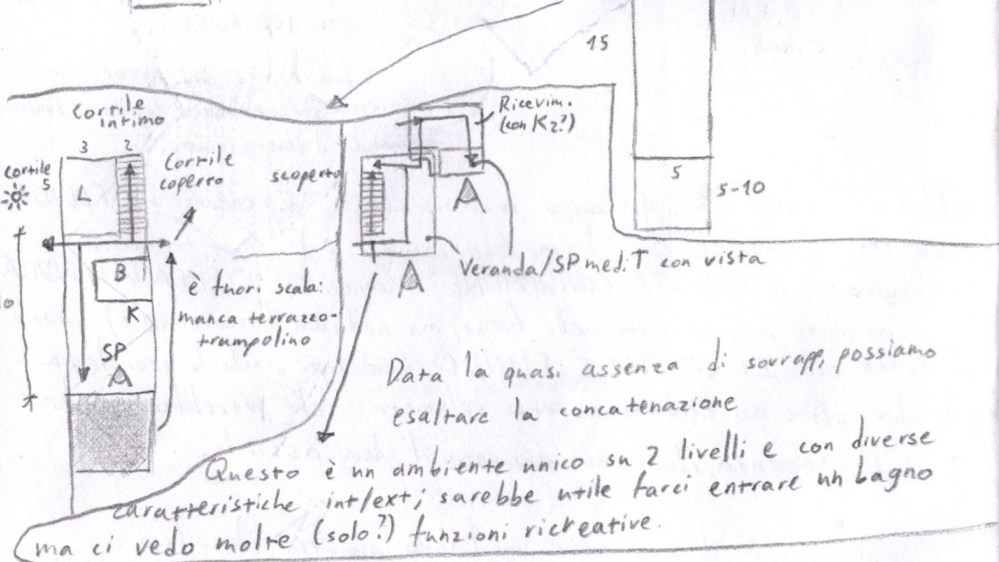 15
Cortile
intimo
Ricevim.
(con K2?)
3 2
Cortile
coperto
scoperto
cortile
5
L
5
5-10
B
K
SP
è fuori scala:
manca terrazzo-
trampolino
Veranda/SP med:T con vista
Data la quasi assenza di sovraff, possiamo
esaltare la concatenazione
Questo è un ambiente unico su 2 livelli e con diverse
caratteristiche int/ext; sarebbe utile farci entrare un bagno
ma ci vedo molte (solo?) funzioni ricreative.